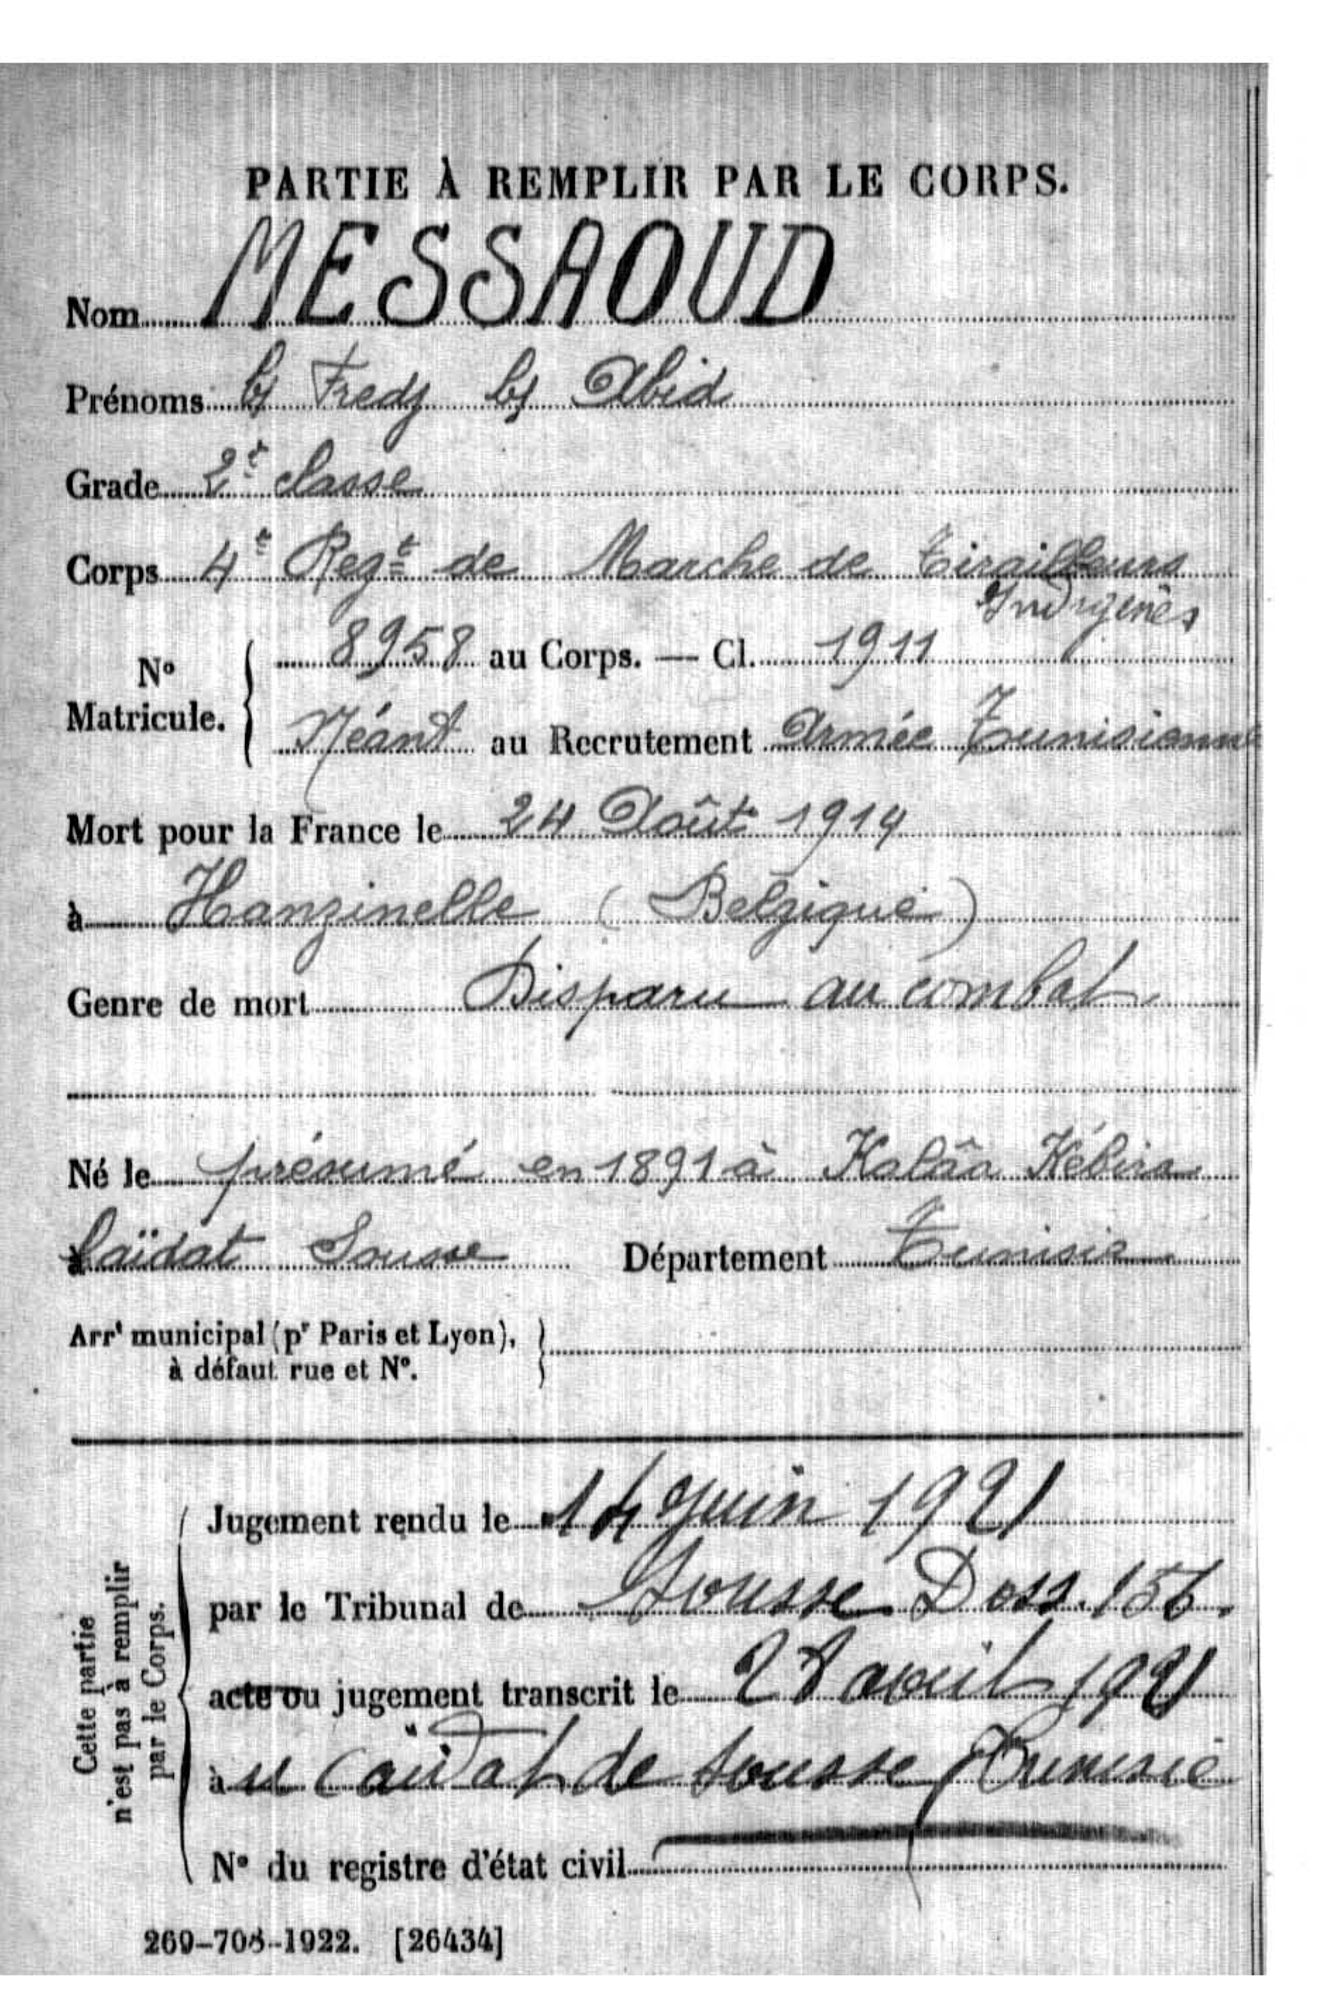 PARTIE À REMPLIR PAR LE CORPS.
Nom MESSAOUD
Prénoms bj Fredj bj Abid
Grade 2e classe
Corps 4e Regt de Marche de Tirailleurs
Indigènes
8958 au Corps. — Cl. 1911
No Matricule.
Néant au Recrutement Armée Tunisienne
Mort pour la France le 24 Août 1914
à Hanzinelle (Belgique)
Genre de mort Disparu au combat
Né le présumé en 1891 à Kalâa Kébira
à Caïdat Sousse Département Tunisie
Arrt municipal (pr Paris et Lyon),
à défaut rue et No.
Cette partie
n'est pas à remplir
par le Corps.
Jugement rendu le 14 Juin 1921
par le Tribunal de Sousse Doss. 156.
acte ou jugement transcrit le 28 avril 1921
à Caïdat de Sousse Tunisie
No du registre d'état civil
269-708-1922. [26434]